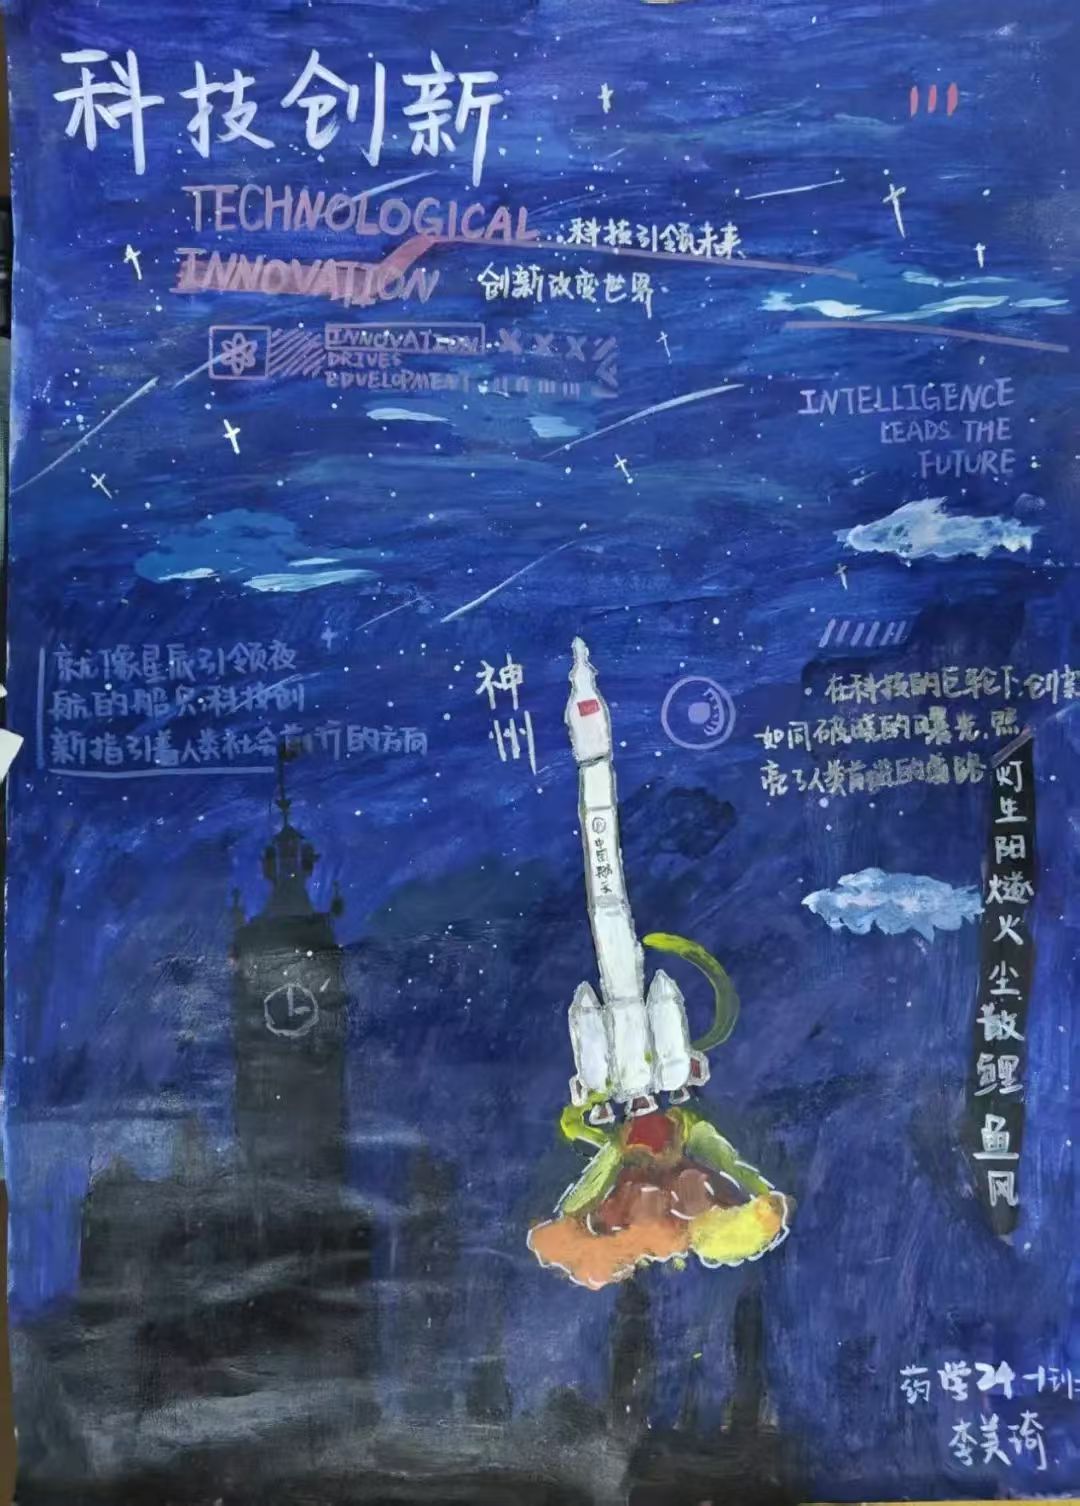 科技创新
TECHNOLOGICAL
INNOVATION
科技引领未来
创新改变世界
INNOVATION
DRIVES
EDVELOPMENT
INTELLIGENCE
LEADS THE
FUTURE
就像星辰引领夜
航的船只,科技创
新指引着人类社会前行的方向
神州
在科技的巨轮下,创新
如同破晓的曙光,照
亮了人类前进的道路
灯生阳燧火尘散鲤鱼风
中国
药学24-1班
李美琦